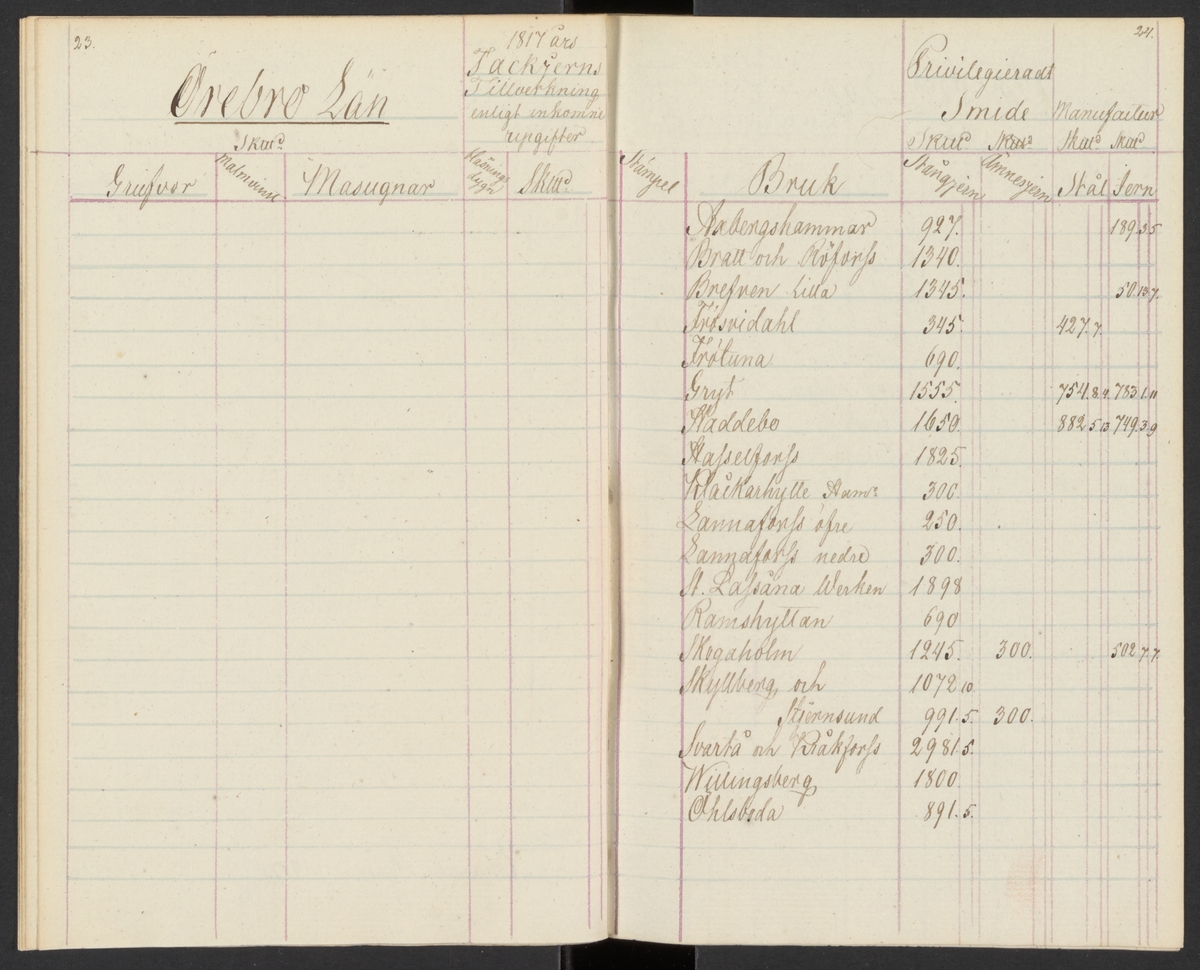 23.
1817 års
Tackjerns
Tillverkning
enligt inkomne
uppgifter
Örebro Län
Skud
Grufvor Malmvinst Masugnar Blåsnings dygn Skud
24.
Privilegieradt
Smide Manufactur
Skud Skud Skud Skud
Stämpel Bruk Stångjern Ämnesjern Stål Jern
Axbergshammar 927. 189.3.5
Bratt och Röforss 1340.
Brefven Lilla 1345. 50.13.7.
Frösvidahl 345. 427.7.
Frötuna 690.
Gryt 1555. 754.8.4. 783.1.11
Haddebo 1650. 882.5.13 749.3.9
Hasselforss 1825.
Klackarhytte Ham: 300.
Lannaforss öfre 250.
Lannaforss nedre 300.
St. Lassåna Werken 1898
Ramshyttan 690
Skogaholm 1245. 300. 502.7.7.
Skyllberg och 1072.10.
Stjernsund 991.5. 300.
Svartå och Kråkforss 2981.5.
Willingsberg 1800.
Öhlsboda 891.5.